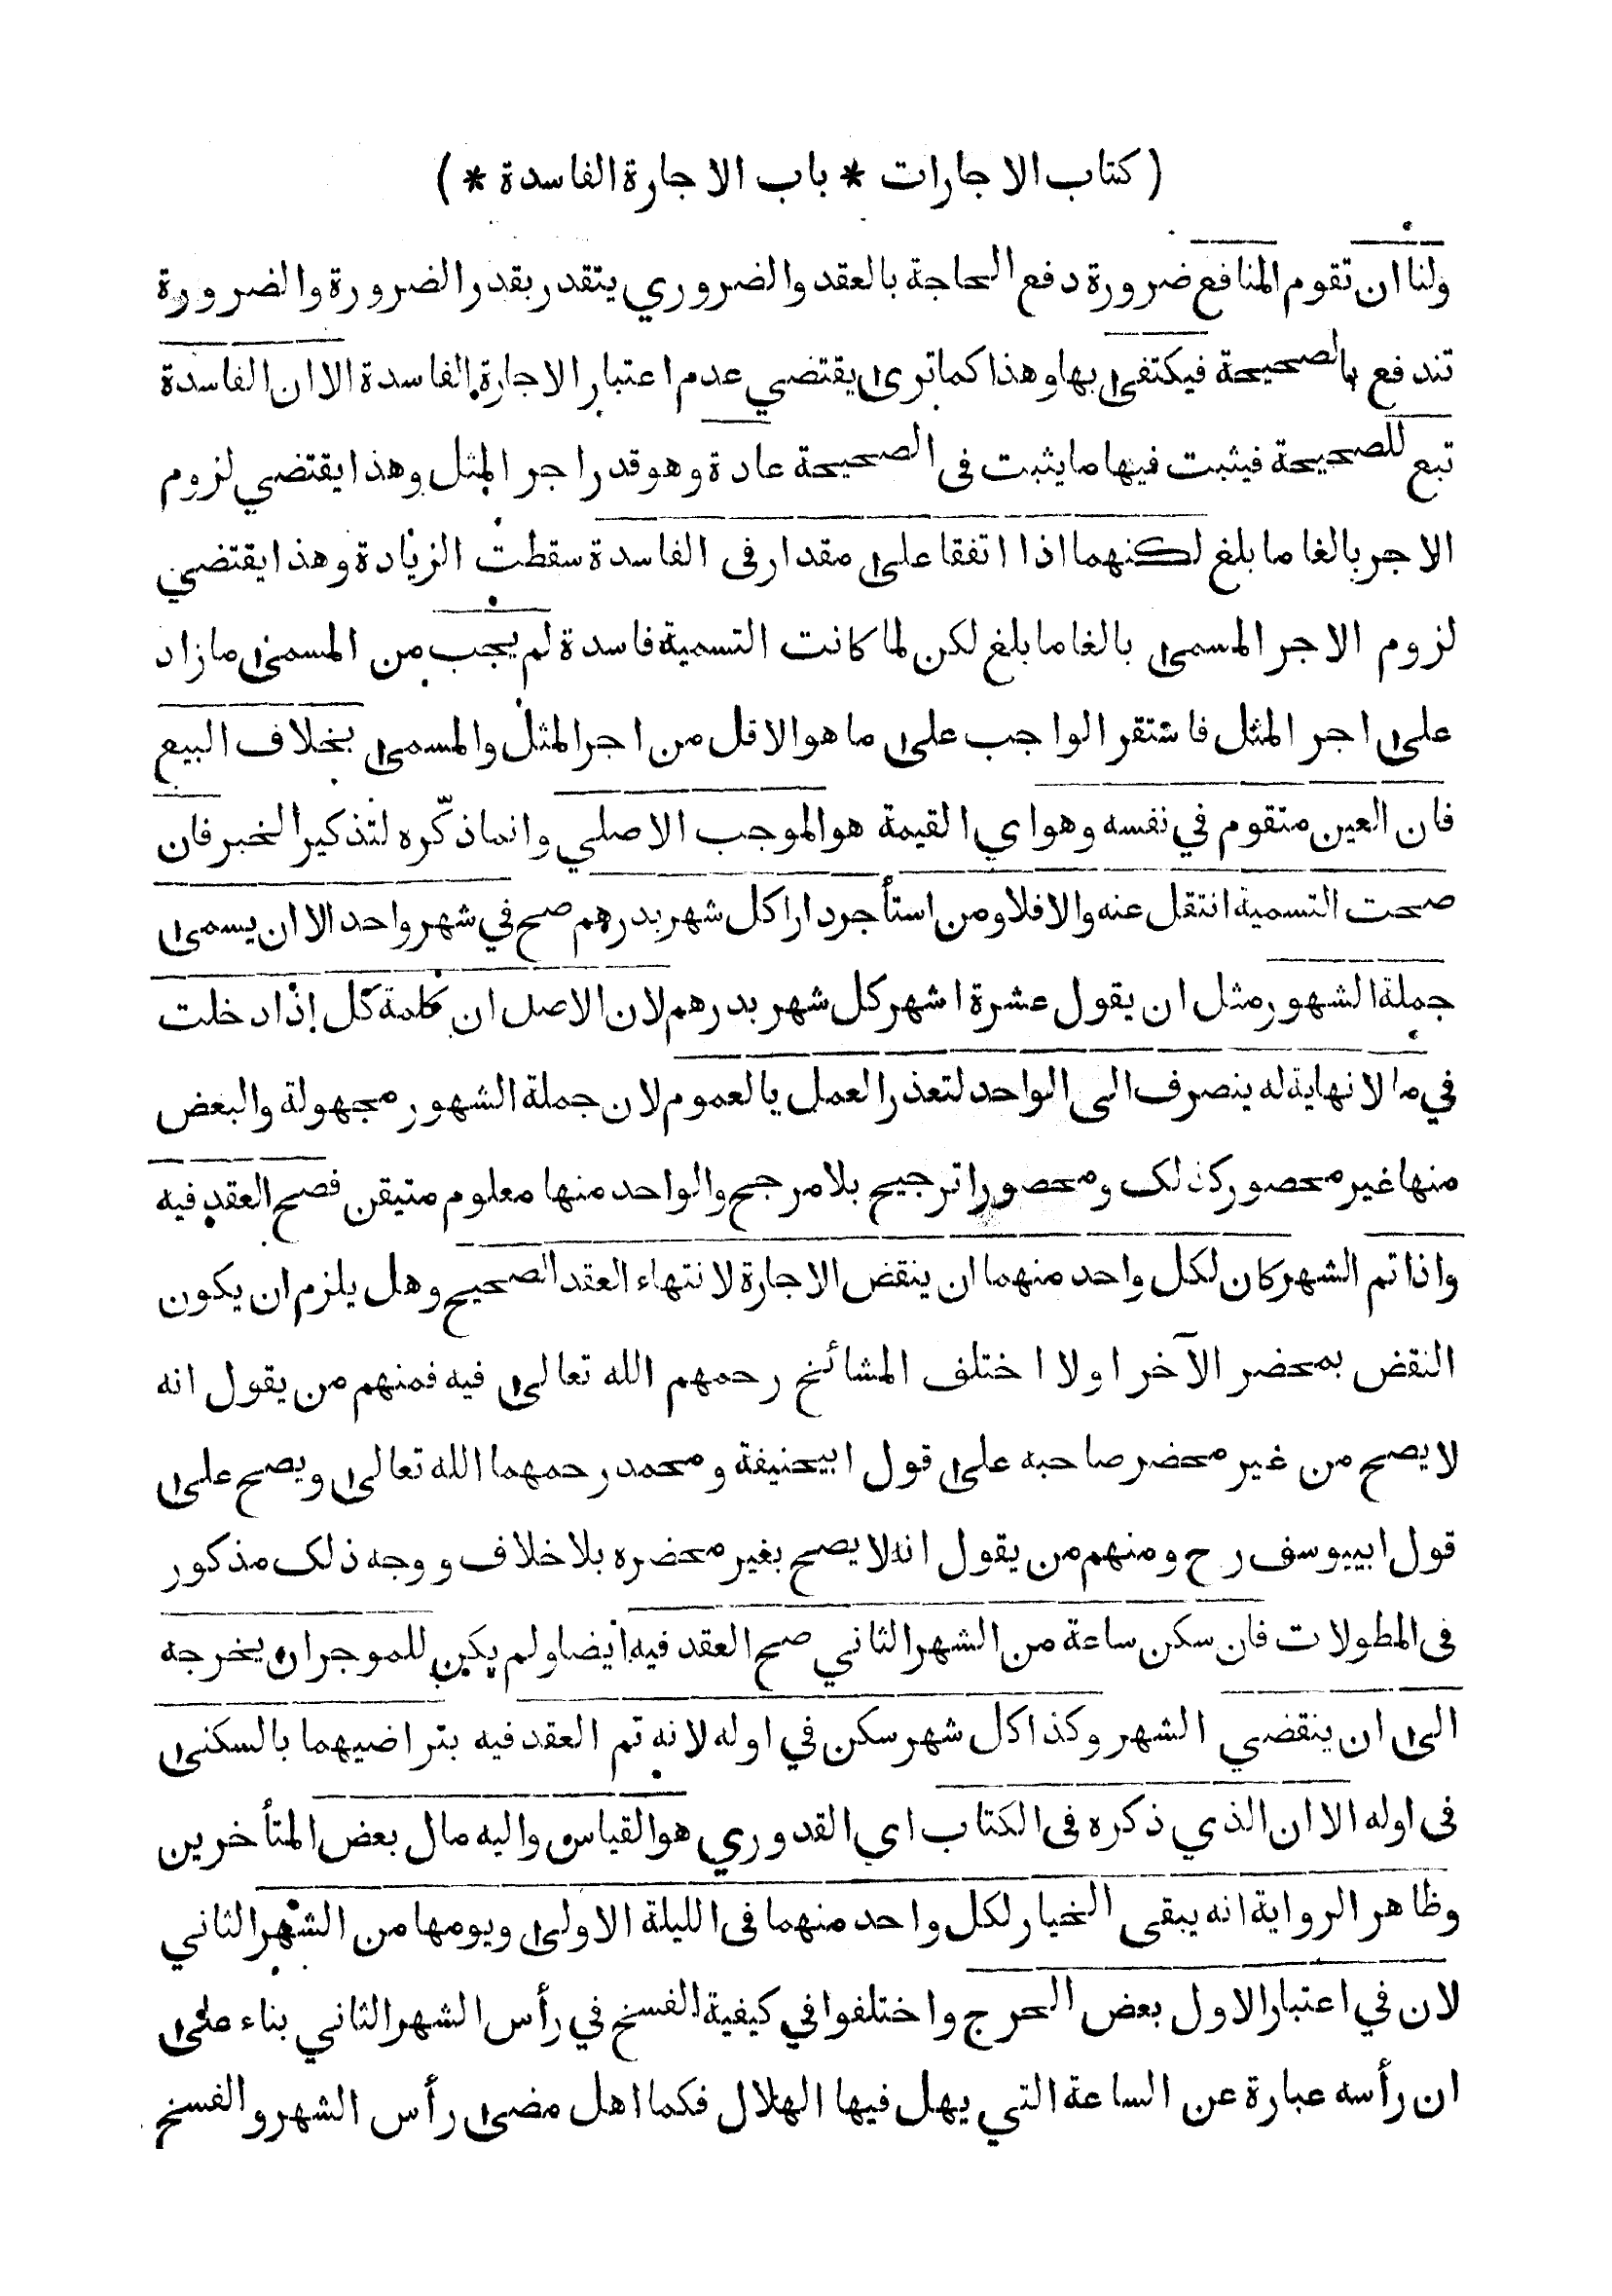 ( كتاب الاجارات * باب الاجارة الفاسدة * )
ولنا ان تقوم المنافع ضرورة دفع الحاجة بالعقد والضروري يتقدر بقدر الضرورة والضرورة
تندفع بالصحيحة فيكتفى بها وهذا كما ترى يقتضي عدم اعتبار الاجارة الفاسدة الا ان الفاسدة
تبع للصحيحة فيثبت فيها ما يثبت فى الصحيحة عادة وهو قدر اجر المثل وهذا يقتضي لزوم
الاجر بالغا ما بلغ لكنهما اذا اتفقا على مقدار فى الفاسدة سقطت الزيادة وهذا يقتضي
لزوم الاجر المسمى بالغا ما بلغ لكن لما كانت التسمية فاسدة لم يجب من المسمى ما زاد
على اجر المثل فاستقر الواجب على ما هو الاقل من اجر المثل والمسمى بخلاف البيع
فان العين متقوم في نفسه وهو اي القيمة هو الموجب الاصلي وانما ذكّره لتذكير الخبر فان
صحت التسمية انتقل عنه والا فلا ومن استأجر دارا كل شهر بدرهم صح في شهر واحد الا ان يسمى
جملة الشهور مثل ان يقول عشرة اشهر كل شهر بدرهم لان الاصل ان كلمة كل إذا دخلت
في ما لا نهاية له ينصرف الى الواحد لتعذر العمل بالعموم لان جملة الشهور مجهولة والبعض
منها غير محصور كذلك ومحصورا ترجيح بلا مرجح والواحد منها معلوم متيقن فصح العقد فيه
واذا تم الشهر كان لكل واحد منهما ان ينقض الاجارة لانتهاء العقد الصحيح وهل يلزم ان يكون
النقض بمحضر الآخر اولا اختلف المشائخ رحمهم الله تعالى فيه فمنهم من يقول انه
لا يصح من غير محضر صاحبه على قول ابيحنيفة ومحمد رحمهما الله تعالى ويصح على
قول ابييوسف رح ومنهم من يقول انه لا يصح بغير محضره بلا خلاف ووجه ذلك مذكور
فى المطولات فان سكن ساعة من الشهر الثاني صح العقد فيه أيضا ولم يكن للموجر ان يخرجه
الى ان ينقضي الشهر وكذا كل شهر سكن في اوله لانه تم العقد فيه بتراضيهما بالسكنى
فى اوله الا ان الذي ذكره فى الكتاب اي القدوري هو القياس واليه مال بعض المتأخرين
وظاهر الرواية انه يبقى الخيار لكل واحد منهما فى الليلة الاولى ويومها من الشهر الثاني
لان في اعتبار الاول بعض الحرج واختلفوا في كيفية الفسخ في رأس الشهر الثاني بناء على
ان رأسه عبارة عن الساعة التي يهل فيها الهلال فكما اهل مضى رأس الشهر والفسخ